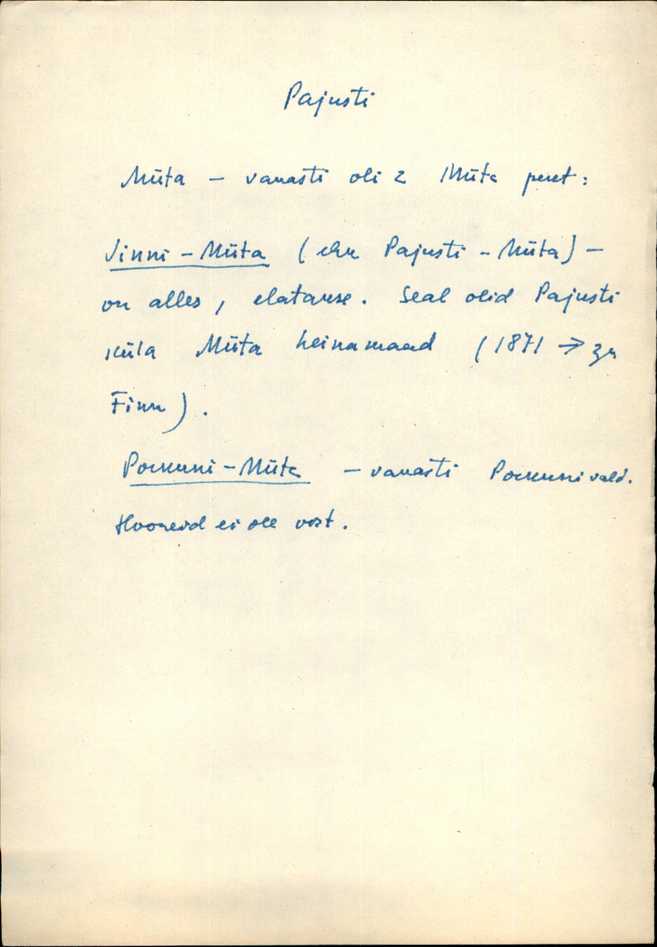 Pajusti
Müta – vanasti oli 2 Müta peret:
Jinni-Müta (ehk Pajusti-Müta) –
on alles, elatakse. Seal olid Pajusti
küla Müta heinamaad (1871 → zu
Finn).
-Müta – vanasti vald.
Hooneid ei ole vast.